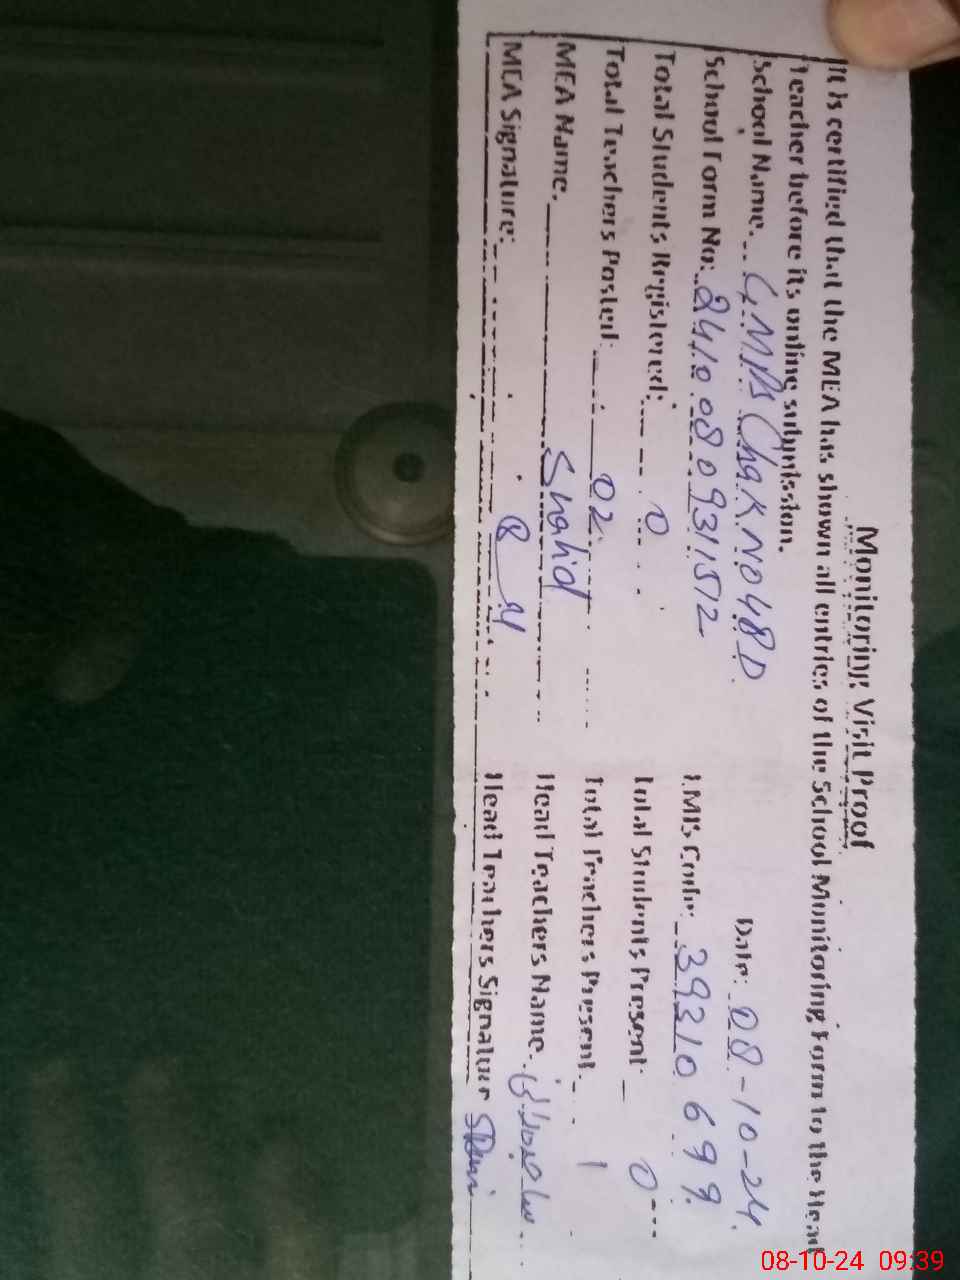 Monitoring Visit Proof
It is certified that the MEA has shown all entries of the School Monitoring Form to the Head
Teacher before its online submission.
Date: 08-10-24
School Name. GMPS Chak No 48D
School Form No: 2410080931152 EMIS Code: 39310699
Total Students Registered: 0 Total Students Present: 0
Total Teachers Posted: 02 Total Teachers Present. 1
MEA Name. Shahid Head Teachers Name.
MEA Signature: Head Teachers Signature
08-10-24 09:39